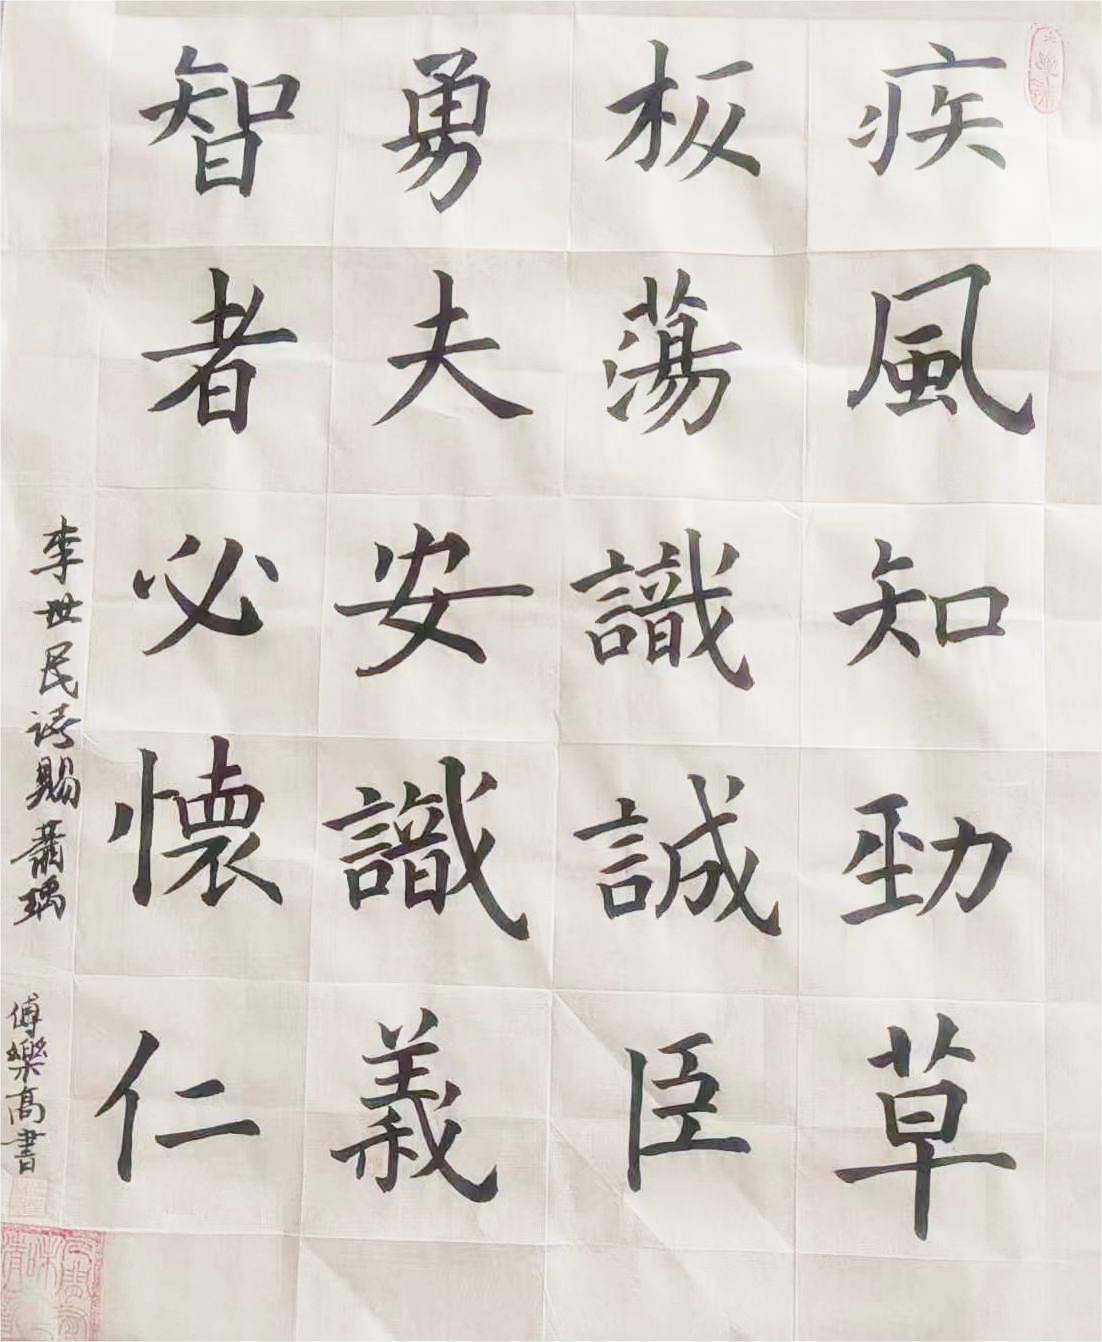 疾風知勁草
板蕩識誠臣
勇夫安識義
智者必懷仁
李世民詩賜蕭瑀
傅樂高書